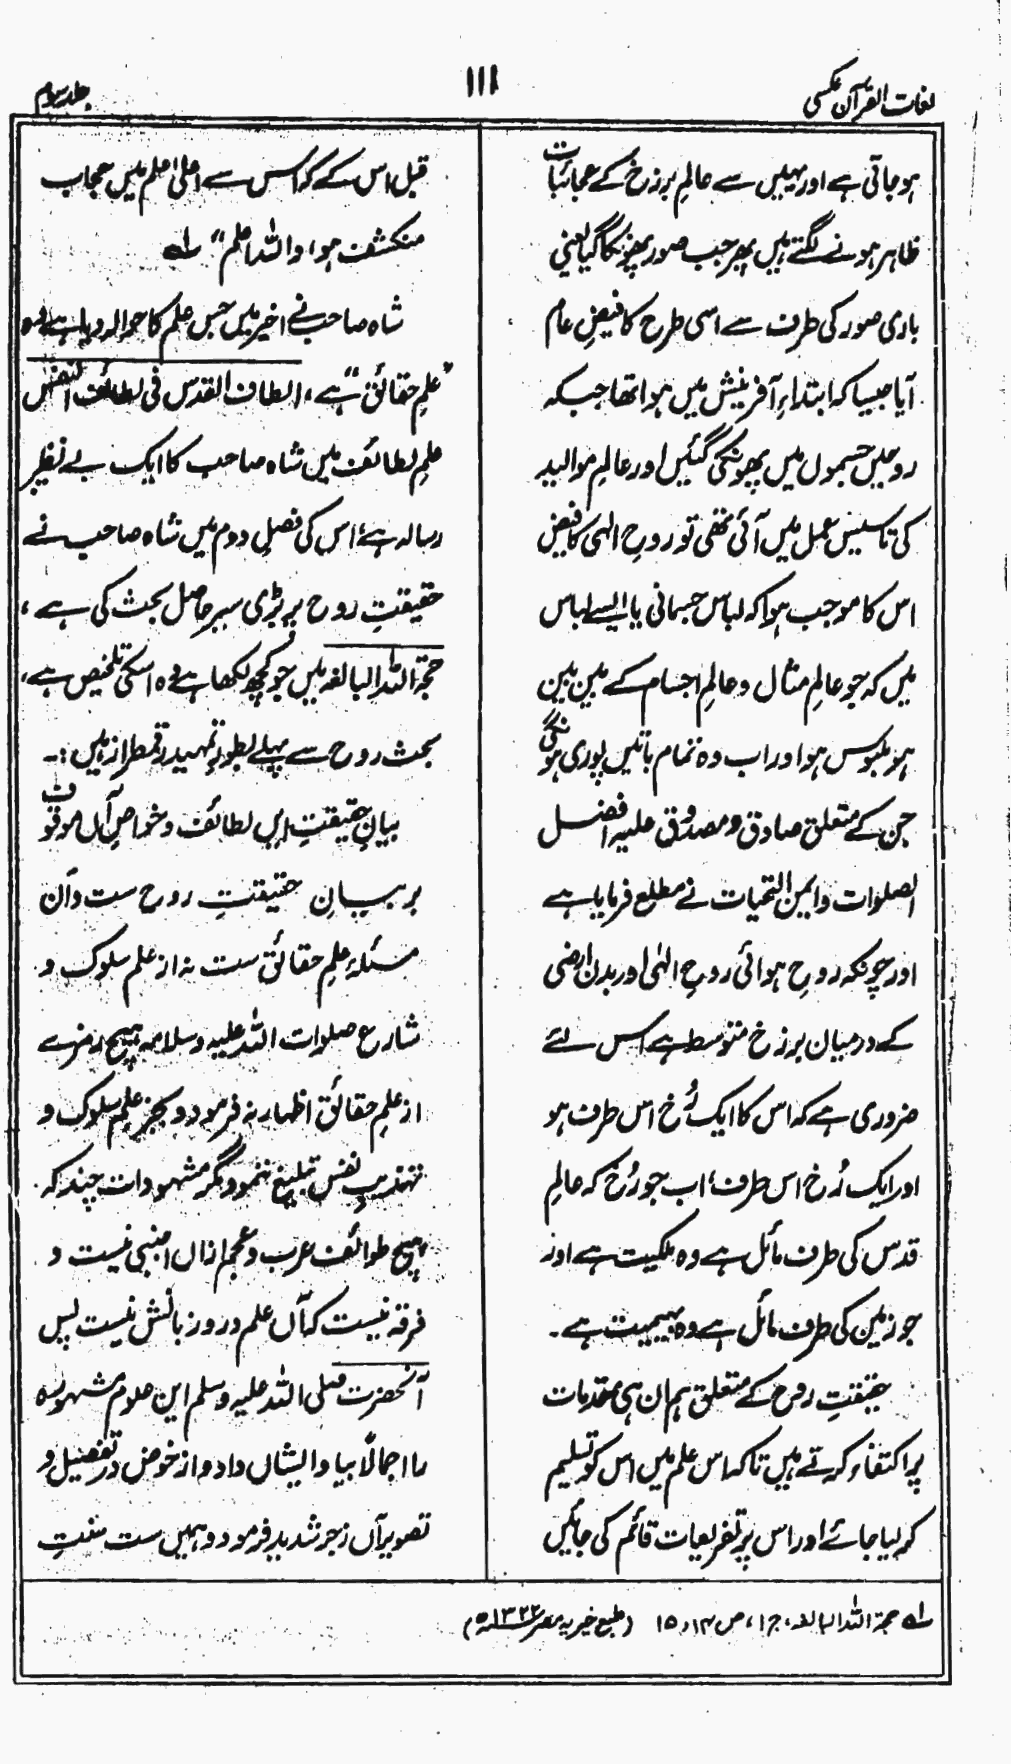 لغات القرآن عکسی
۱۱۱
جلد سوم
ہو جاتی ہے اور یہیں سے عالمِ برزخ کے عجائبات
ظاہر ہونے لگتے ہیں پھر جب صور پھونکا گیا یعنی
باری صور کی طرف سے اسی طرح کا فیضِ عام
آیا جیسا کہ ابتداءِ آفرینش میں ہوا تھا جب کہ
روحیں جسموں میں پھونکی گئیں اور عالمِ موالید
کی تاسیس عمل میں آئی تھی تو روحِ الٰہی کا فیض
اس کا موجب ہوا کہ لباس جسمانی یا ایسے لباس
میں کہ جو عالمِ مثال و عالمِ اجسام کے بین بین
ہو ملبوس ہو اور اب وہ تمام باتیں پوری ہونگی
جن کے متعلق صادق و مصدوق علیہ افضل
الصلوات و ایمن التحیات نے مطلع فرمایا ہے
اور چونکہ روحِ ہوائی روحِ الٰہی اور بدن ارضی
کے درمیان برزخ متوسط ہے اس لئے
ضروری ہے کہ اس کا ایک رُخ اس طرف ہو
اور ایک رُخ اس طرف، اب جو رُخ کہ عالمِ
قدس کی طرف مائل ہے وہ ملکیت ہے اور
جو زمین کی طرف مائل ہے وہ بہیمیت ہے۔
حقیقتِ روح کے متعلق ہم ان ہی مقدمات
پر اکتفاء کرتے ہیں تاکہ اس علم میں اس کو تسلیم
کر لیا جائے اور اس پر تفریعات قائم کی جائیں
قبل اس کے کہ اس سے اعلیٰ علم میں حجاب
منکشف ہو، واللہ اعلم" لہ
شاہ صاحب نے اخیر میں جس علم کا حوالہ دیا ہے وہ
"علمِ حقائق" ہے، الطاف القدس فی لطائف النفس
علمِ لطائف میں شاہ صاحب کا ایک بے نظیر
رسالہ ہے، اس کی فصل دوم میں شاہ صاحب نے
حقیقتِ روح پر بڑی سیر حاصل بحث کی ہے،
حجۃ اللہ البالغہ میں جو کچھ لکھا ہے وہ اسکی تلخیص ہے،
بحث روح سے پہلے بطورِ تمہید رقمطراز ہیں :۔
بیانِ حقیقتِ ایں لطائف و خواصِ آں موقوف
بر بیانِ حقیقتِ روح ست و آن
مسئلہ علمِ حقائق ست نہ از علم سلوک و
شارع صلوات اللہ علیہ و سلامہ ہیچ رمزے
از علمِ حقائق اظہار نہ فرمود و بجز علم سلوک و
تہذیبِ نفس تبلیغ ننمود مگر مشہودات چند کہ
ہیچ طوائف عرب و عجم ازاں اجنبی نیست و
فرقہ نیست کہ آں علم در روز بانش نیست پس
آنحضرت صلی اللہ علیہ وسلم این علوم مشہورہ
را اجمالاً بیاد ایشاں داد و از خوض در تفصیل و
تصویر آں زجر شدید فرمود و ہمیں ست سنتِ
لہ حجۃ اللہ البالغہ، ج ۱، ص ۱۴، ۱۵ (طبع خیریہ مصر ۱۳۲۲ھ)